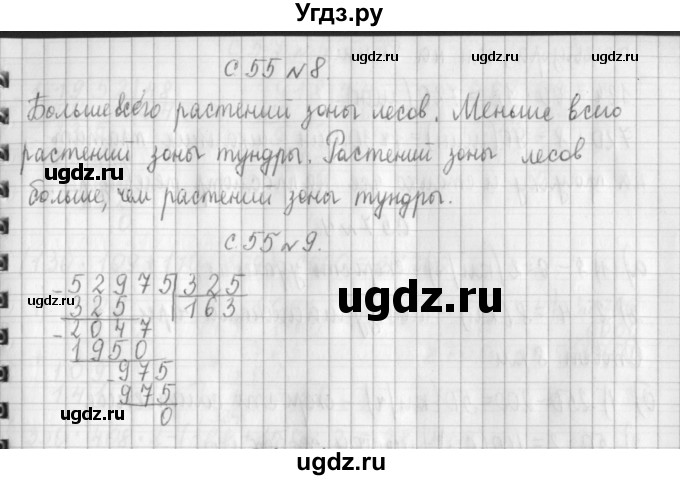 Угдз.ру
с 55 №8.
Больше всего растений зоны лесов. Меньше всего
растений зоны тундры. Растений зоны лесов
больше, чем растений зоны тундры.
с 55 №9.
-52975|325
325 163
-2047
1950
-975
975
0
ugdz.ru
ugdz.ru
ugdz.ru
ugdz.ru
ugdz.ru
ugdz.ru
ugdz.ru
ugdz.ru
ugdz.ru
ugdz.ru
ugdz.ru
ugdz.ru